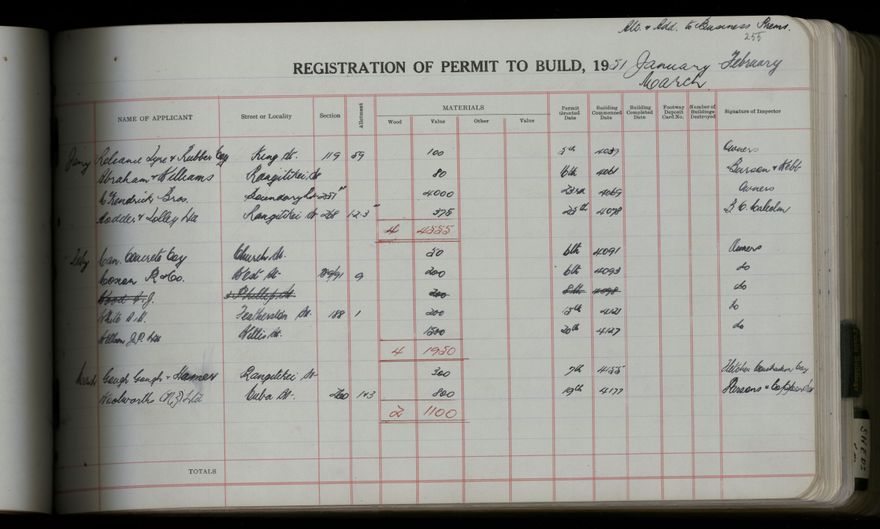 Alt. & Add. to Business Prems.
255
REGISTRATION OF PERMIT TO BUILD, 1951 January February
March
NAME OF APPLICANT Street or Locality Section Allotment MATERIALS Permit Granted Date Building Commenced Date Building Completed Date Footway Deposit Card No. Number of Buildings Destroyed Signature of Inspector
Wood Value Other Value
Reliance Tyre & Rubber Coy King St. 119 59 100 5th 4037 Owners
Abraham & Williams Rangitikei St 80 16th 4061
McKendrick Bros. 4000 23rd 4069 Owners
Rangitikei St 268 1.2.3 375 25th 4078
4 4555
Feby Can. Concrete Coy Church St. 50 6th 4091 Owners
Conan R & Co. West St. 9 200 6th 4093 do
J. & Phillip St 200 8th 4098 do
White Featherston St. 188 1 200 15th 4121 do
J.P. Ltd Willis St. 1500 20th 4127 do
4 1950
March Gough Gough & Hamer Rangitikei St 300 7th 4155 Fletcher Construction Coy
Woolworths (N.Z) Ltd Cuba St. 260 1&3 800 19th 4177
2 1100
TOTALS
SHEDS